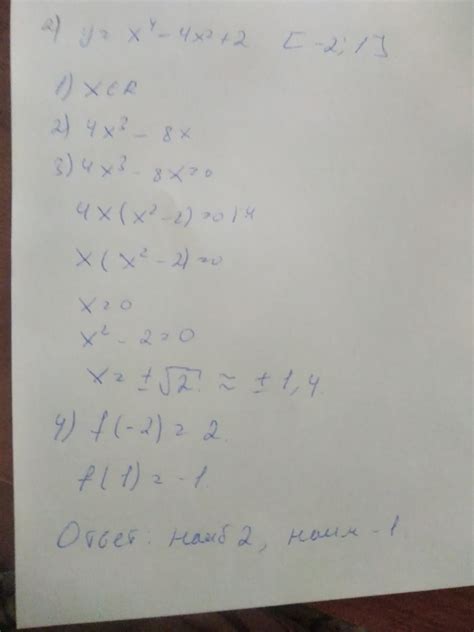 а) y = x⁴ - 4x² + 2 [-2; 1]
1) x∈R
2) 4x³ - 8x
3) 4x³ - 8x = 0
4x(x² - 2) = 0 |:4
x(x² - 2) = 0
x = 0
x² - 2 = 0
x = ±√2 ≈ ±1,4
4) f(-2) = 2
f(1) = -1.
Ответ: наиб 2, наим -1